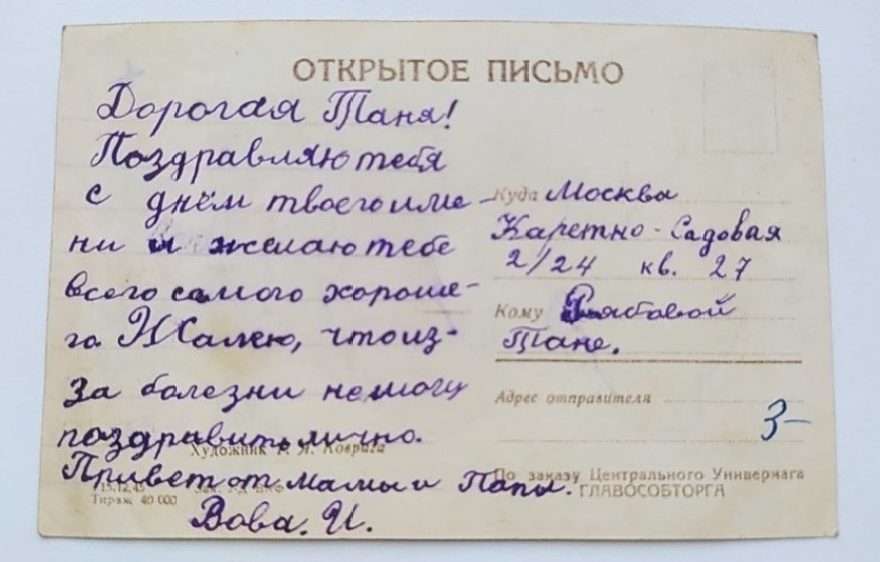 ОТКРЫТОЕ ПИСЬМО
Дорогая Таня!
Поздравляю тебя
с днём твоего име-
ни и желаю тебе
всего самого хороше-
го Жалею, что из-
за болезни не могу
поздравить лично.
Привет от мамы и Папы.
Вова. И.
Куда Москва
Каретно-Садовая
2/24 кв. 27
Кому Рябовой
Тане.
Адрес отправителя
3-
Художник Г. Я. Коврига
Тираж 40 000
По заказу Центрального Универмага
ГЛАВОСОБТОРГА